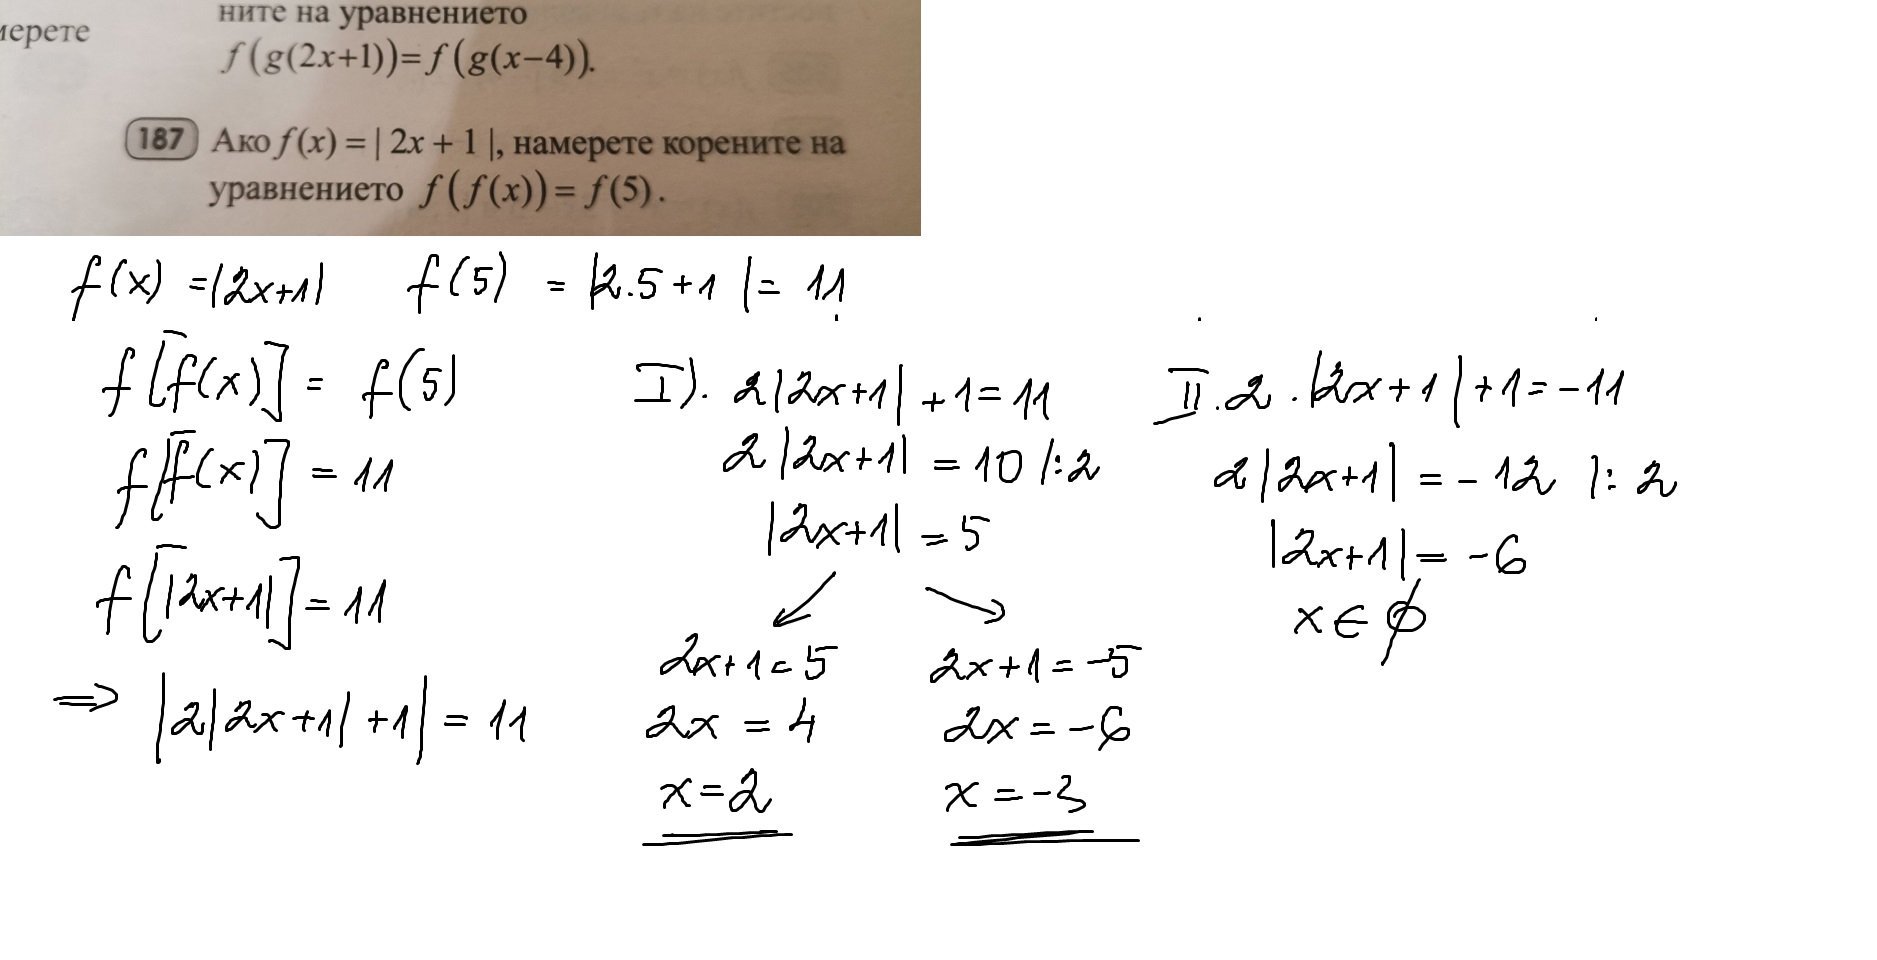 ните на уравнението
мерете
f(g(2x+1))=f(g(x−4)).
187 Ако f(x) = | 2x + 1 |, намерете корените на
уравнението f(f(x)) = f(5).
f(x) =|2x+1| f(5) = |2.5+1| = 11
f[f(x)] = f(5)
f[f(x)] = 11
f[|2x+1|] = 11
⇒ |2|2x+1|+1| = 11
I). 2|2x+1| + 1 = 11
2|2x+1| = 10 |:2
|2x+1| = 5
↙ ↘
2x+1 = 5 2x+1 = -5
2x = 4 2x = -6
x = 2 x = -3
II. 2 . |2x+1| + 1 = -11
2|2x+1| = - 12 |: 2
|2x+1| = -6
x ∈ ∅